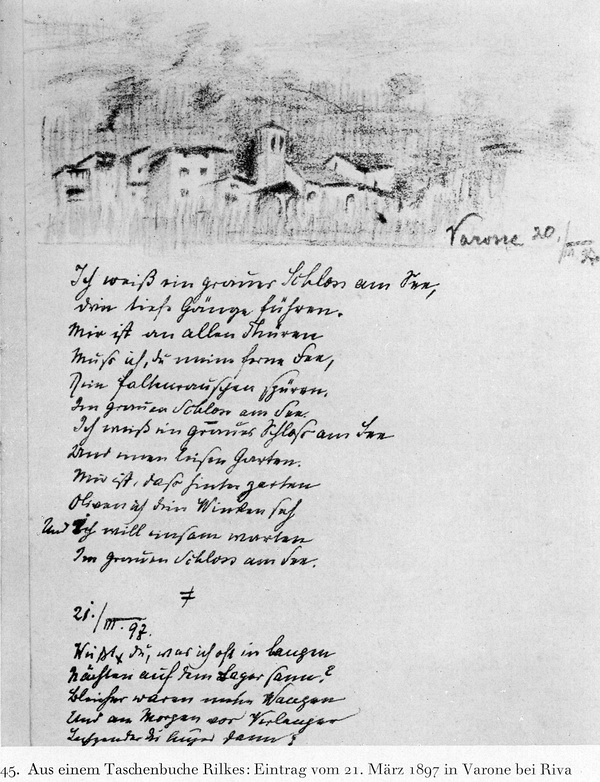 Varone 20./III.
Ich weiß ein graues Schloss am See,
drin tiefe Gänge führen.
Mir ist an allen Thüren
Muss ich, du meine ferne Fee,
Dein Faltenrauschen spüren.
Im grauen Schloss am See.
Ich weiß ein graues Schloß am See
Und einen leisen Garten.
Mir ist, daß hinter zarten
Oliven ich dein Winken seh
Und Ich will einsam warten
Im grauen Schloss am See.
21./III. 97.
Weißt du, was ich oft in langen
Nächten auf dem Lager sann?
Bleicher waren meine Wangen
Und am Morgen vor Verlangen
die Augen dann
45. Aus einem Taschenbuche Rilkes: Eintrag vom 21. März 1897 in Varone bei Riva